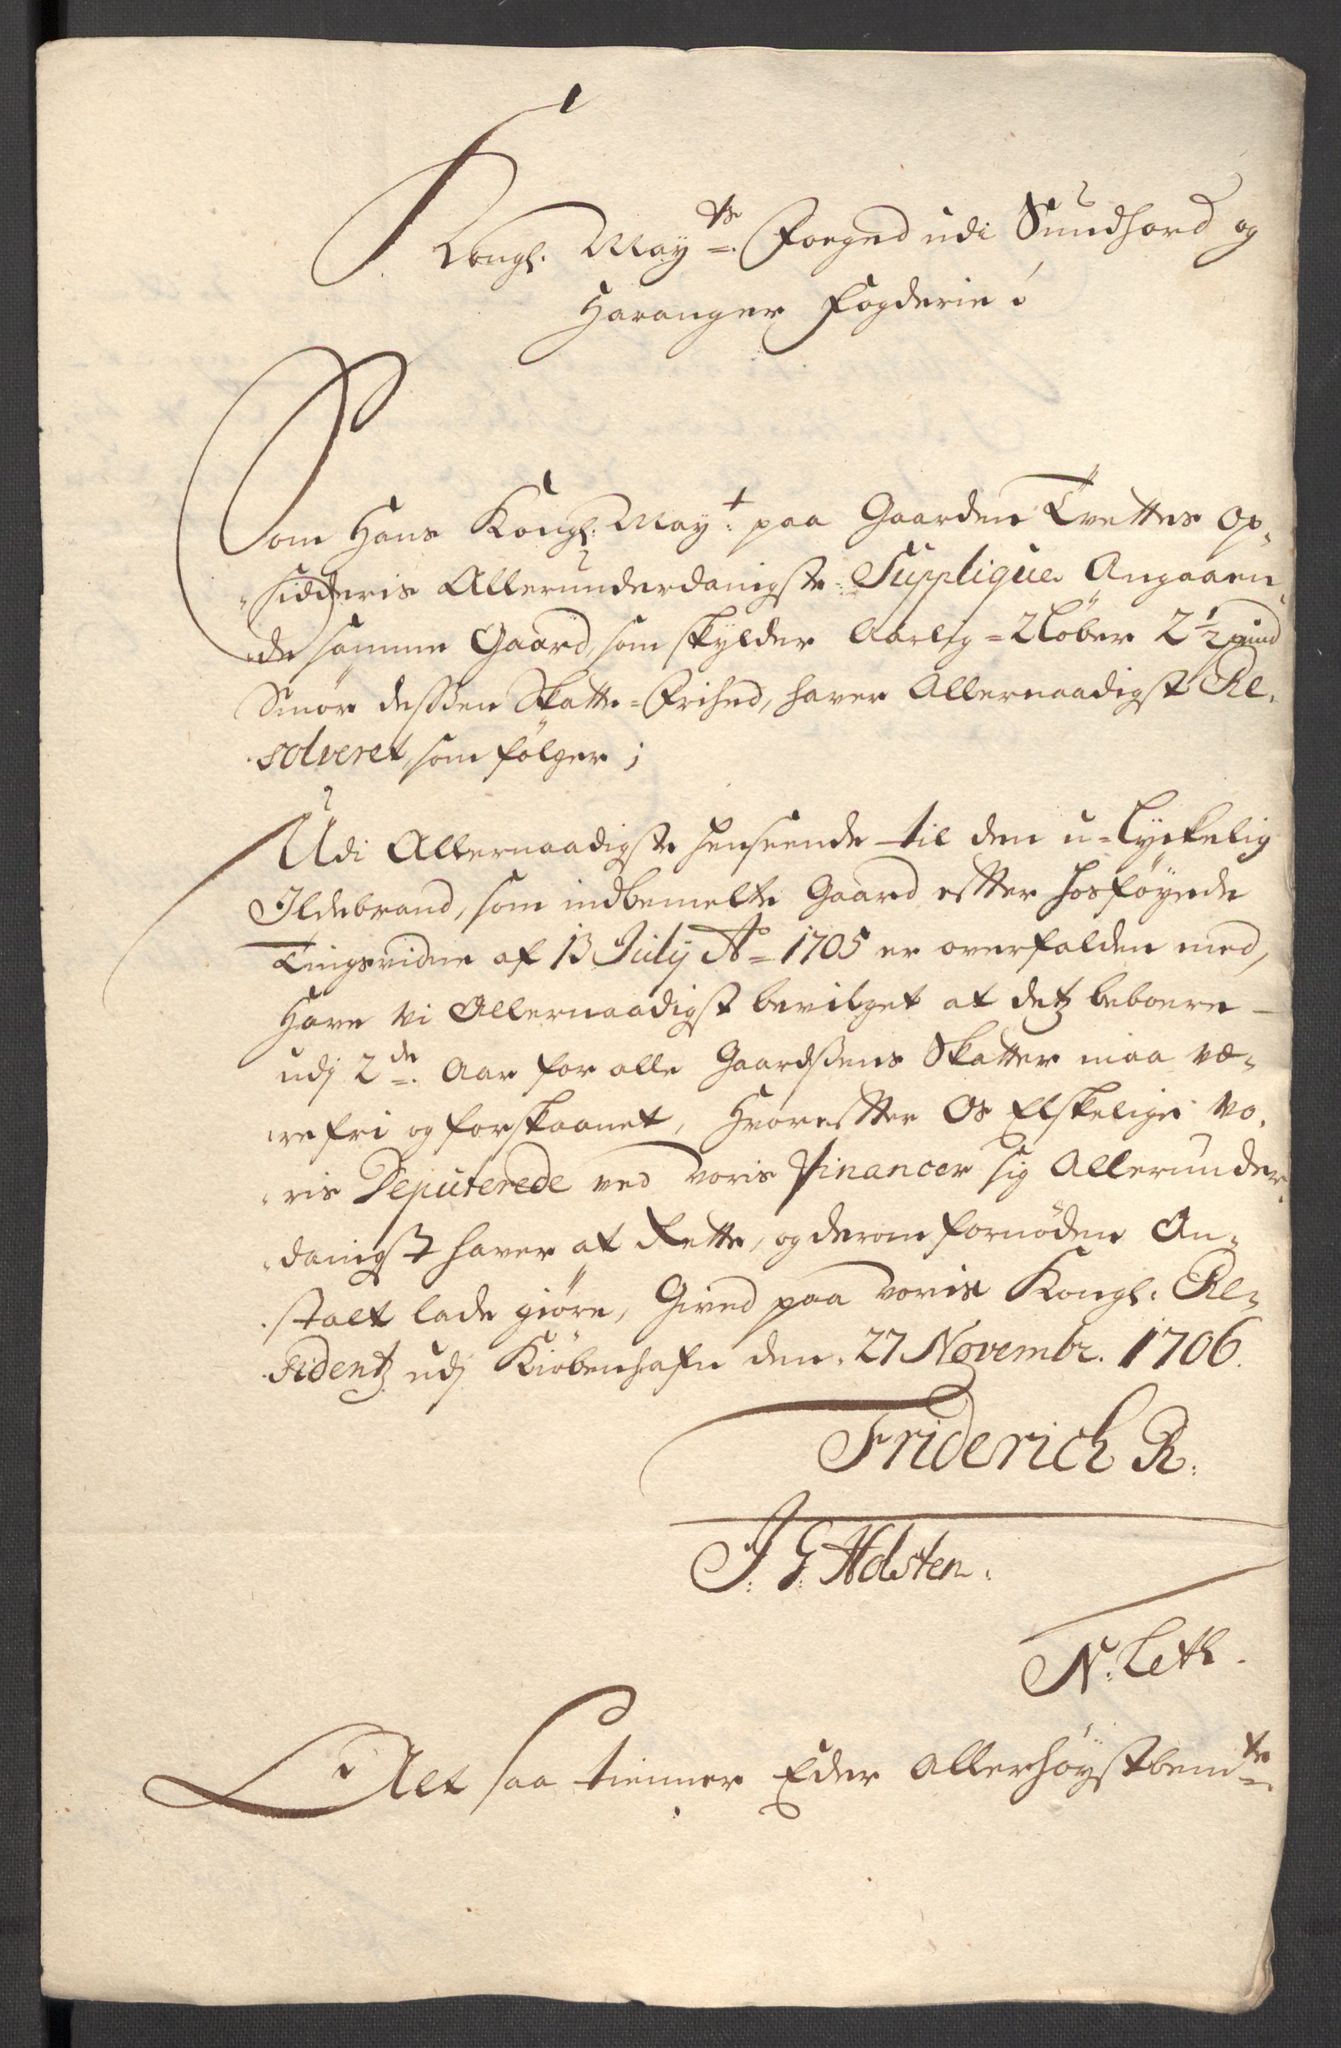 Kongl. May.ts Foeged udi Sundhord og
Haranger Fogderie
Som Hans Kongl: May.t paa Gaarden Tvettes Op-
sidderis Allerunderdanigste Supplique Angaaen
de samme Gaard, som skylder Aarlig = 2 Løber 2 1/2 pund
Smør dessen Skatte-Frihed, haver Allernaadigst Re-
solveret, som følger;
Udi Allernaadigste henseende til den u-lyckelig
Ildebrand, som indbemelte Gaard efter hosføyede
Tingsvidne af 13 July Ao 1705 er overfalden med,
Have vi Allernaadigst bevilget at detz beboere
udj 2de Aar for alle Gaardssens Skatter maa væ-
re fri og forskaanet, Hvorefter Os Elskelige vo-
ris Deputerede ved voris Financer sig Allerunder-
danigst haver at Rette, og derom fornøden An-
stalt lade giøre, Gived paa voris Kongl: Re-
sidentz udj Kiøbenhafn den 27 Novembr. 1706.
Friderich R.
J: G: Holsten.
N: Leth.
Alt saa tienner Eder Allerhøystbemte